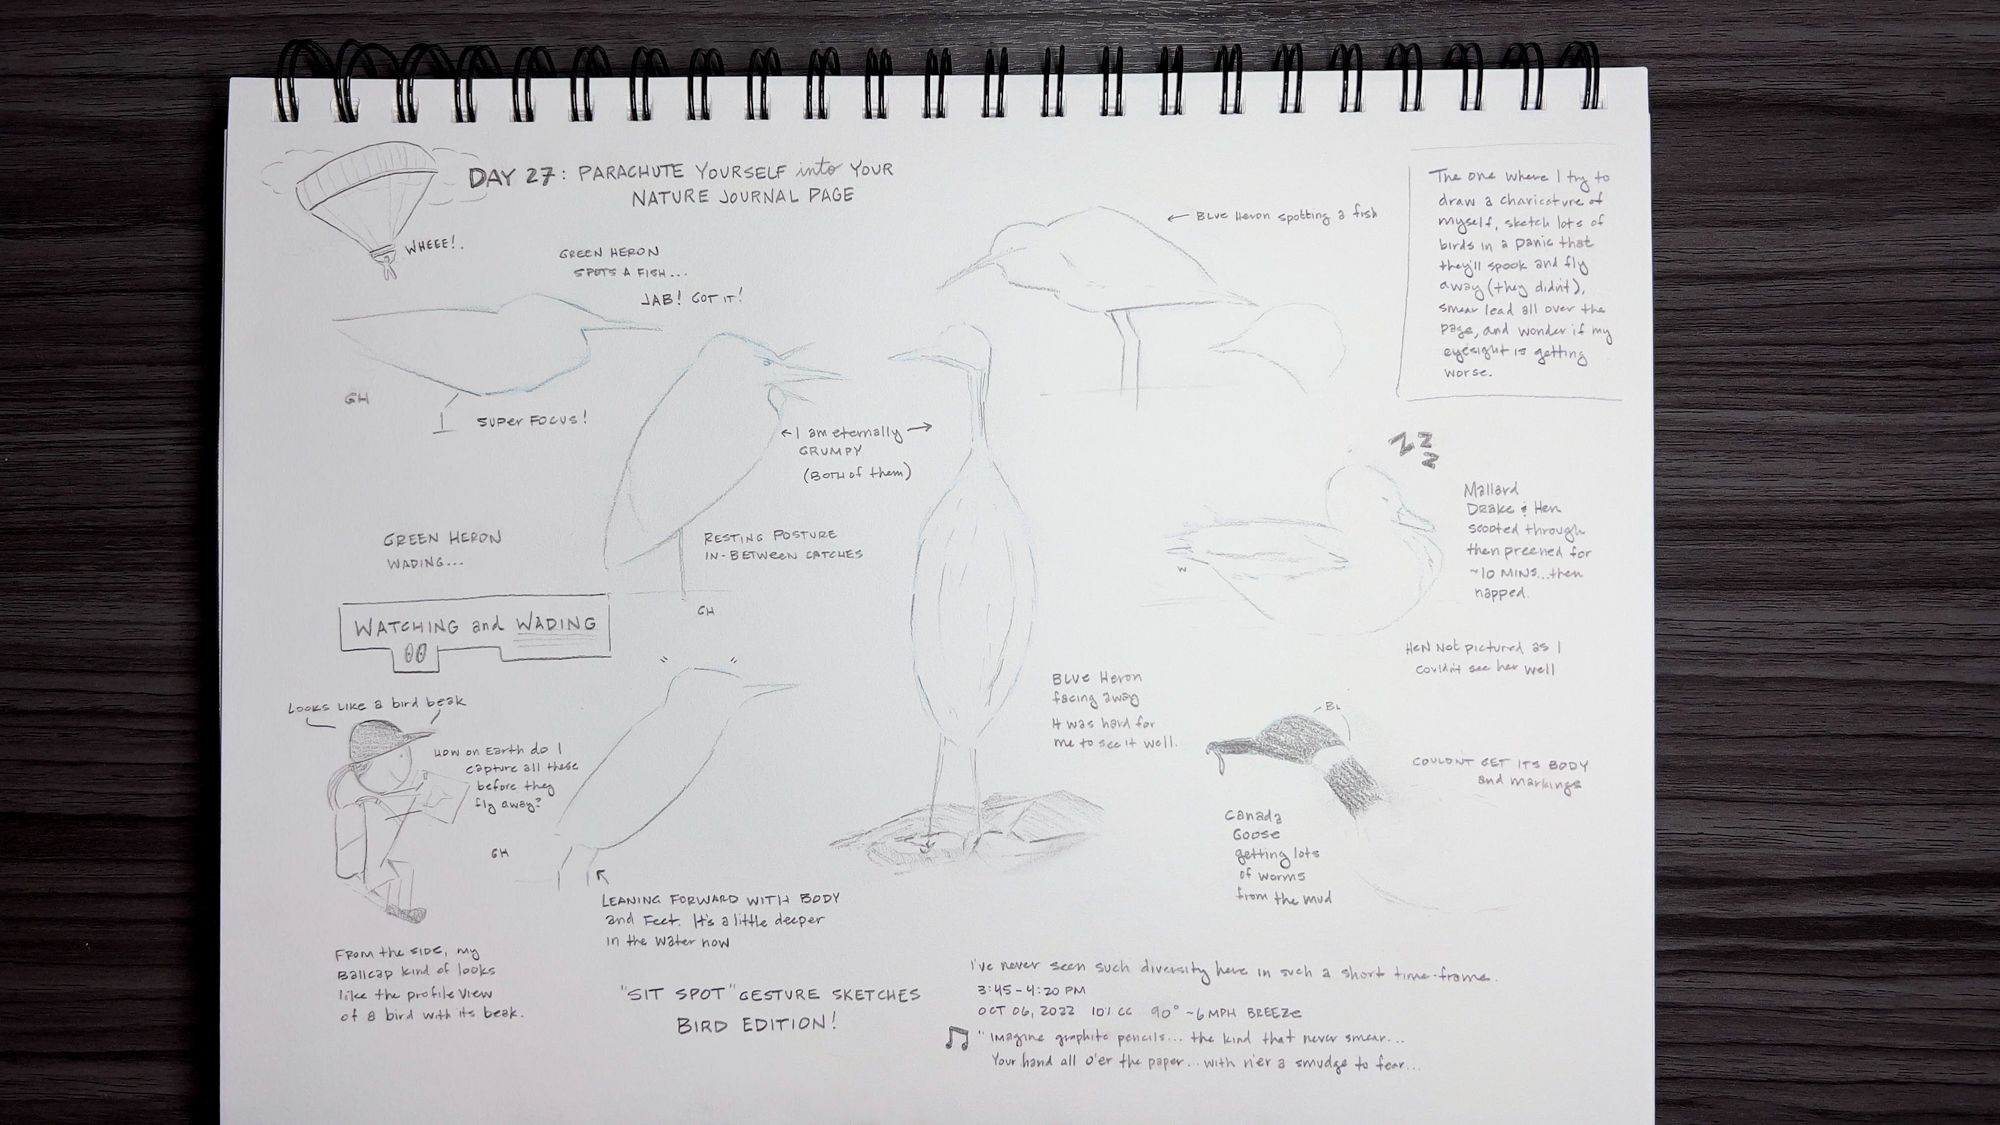 DAY 27: PARACHUTE YOURSELF into YOUR
NATURE JOURNAL PAGE
WHEEE!
GREEN HERON
SPOTS A FISH...
JAB! GOT IT!
← Blue Heron spotting a fish
The one where I try to
draw a charicature of
myself, sketch lots of
birds in a panic that
they'll spook and fly
away (they didn't),
smear lead all over the
page, and wonder if my
eyesight is getting
worse.
GH
SUPER FOCUS!
← I am eternally →
GRUMPY
(BOTH of them)
GREEN HERON
WADING...
RESTING POSTURE
IN-BETWEEN CATCHES
GH
Z Z Z
Mallard
Drake & Hen
scooted through
then preened for
~10 MINS...then
napped.
W
HEN Not pictured as I
couldn't see her well
WATCHING and WADING
Looks Like a bird beak
How on Earth do I
capture all these
before they
fly away?
GH
LEANING FORWARD WITH BODY
and Feet. It's a little deeper
in the water now
From the side, my
Ballcap kind of looks
like the profile view
of a bird with its beak.
Blue Heron
facing away
It was hard for
me to see it well.
BL
COULDN'T GET ITS BODY
and markings
Canada
Goose
getting lots
of worms
from the mud
"SIT SPOT" GESTURE SKETCHES
BIRD EDITION!
I've never seen such diversity here in such a short time-frame.
3:45-4:20 PM
OCT 06, 2022 10% CC 90° ~6 MPH BREEZE
♫ "Imagine graphite pencils... the kind that never smear...
Your hand all o'er the paper... with n'er a smudge to fear...